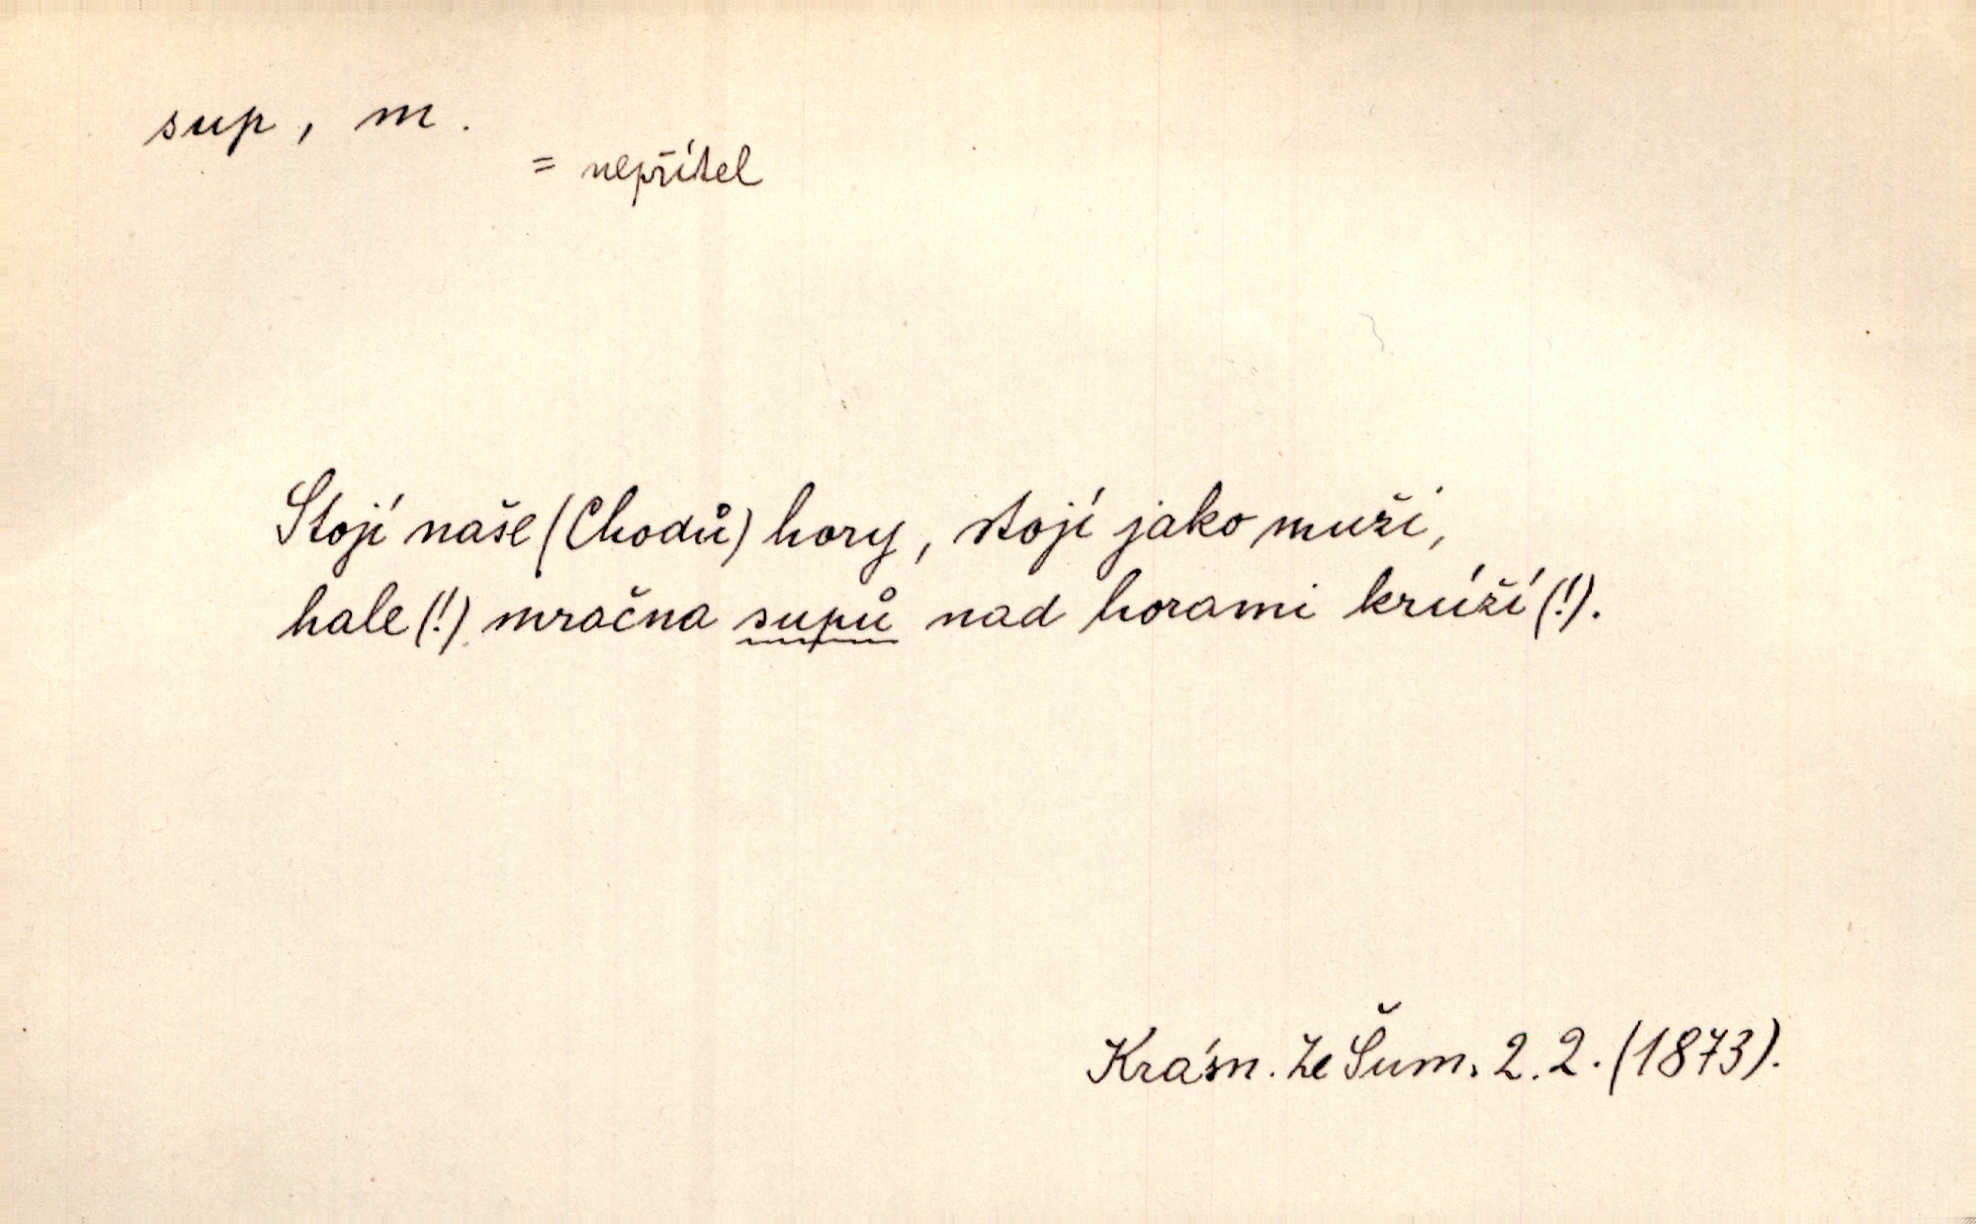 sup, m.
= nepřítel
Stojí naše (Chodů) hory, stojí jako muži,
hale (!) mračna supů nad horami krúží (!).
Krásn. Ze Šum. 2.2. (1873).